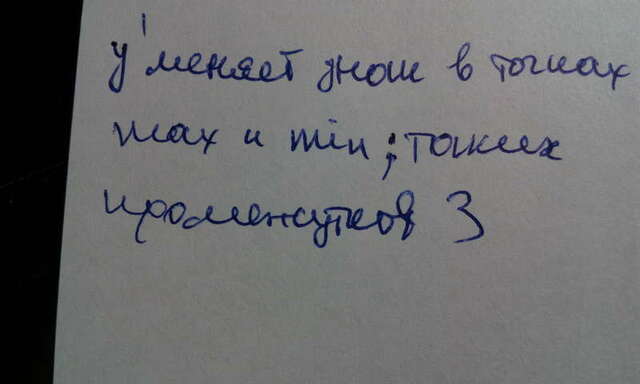 y' меняет знак в точках
max и min ; таких
промежутков 3